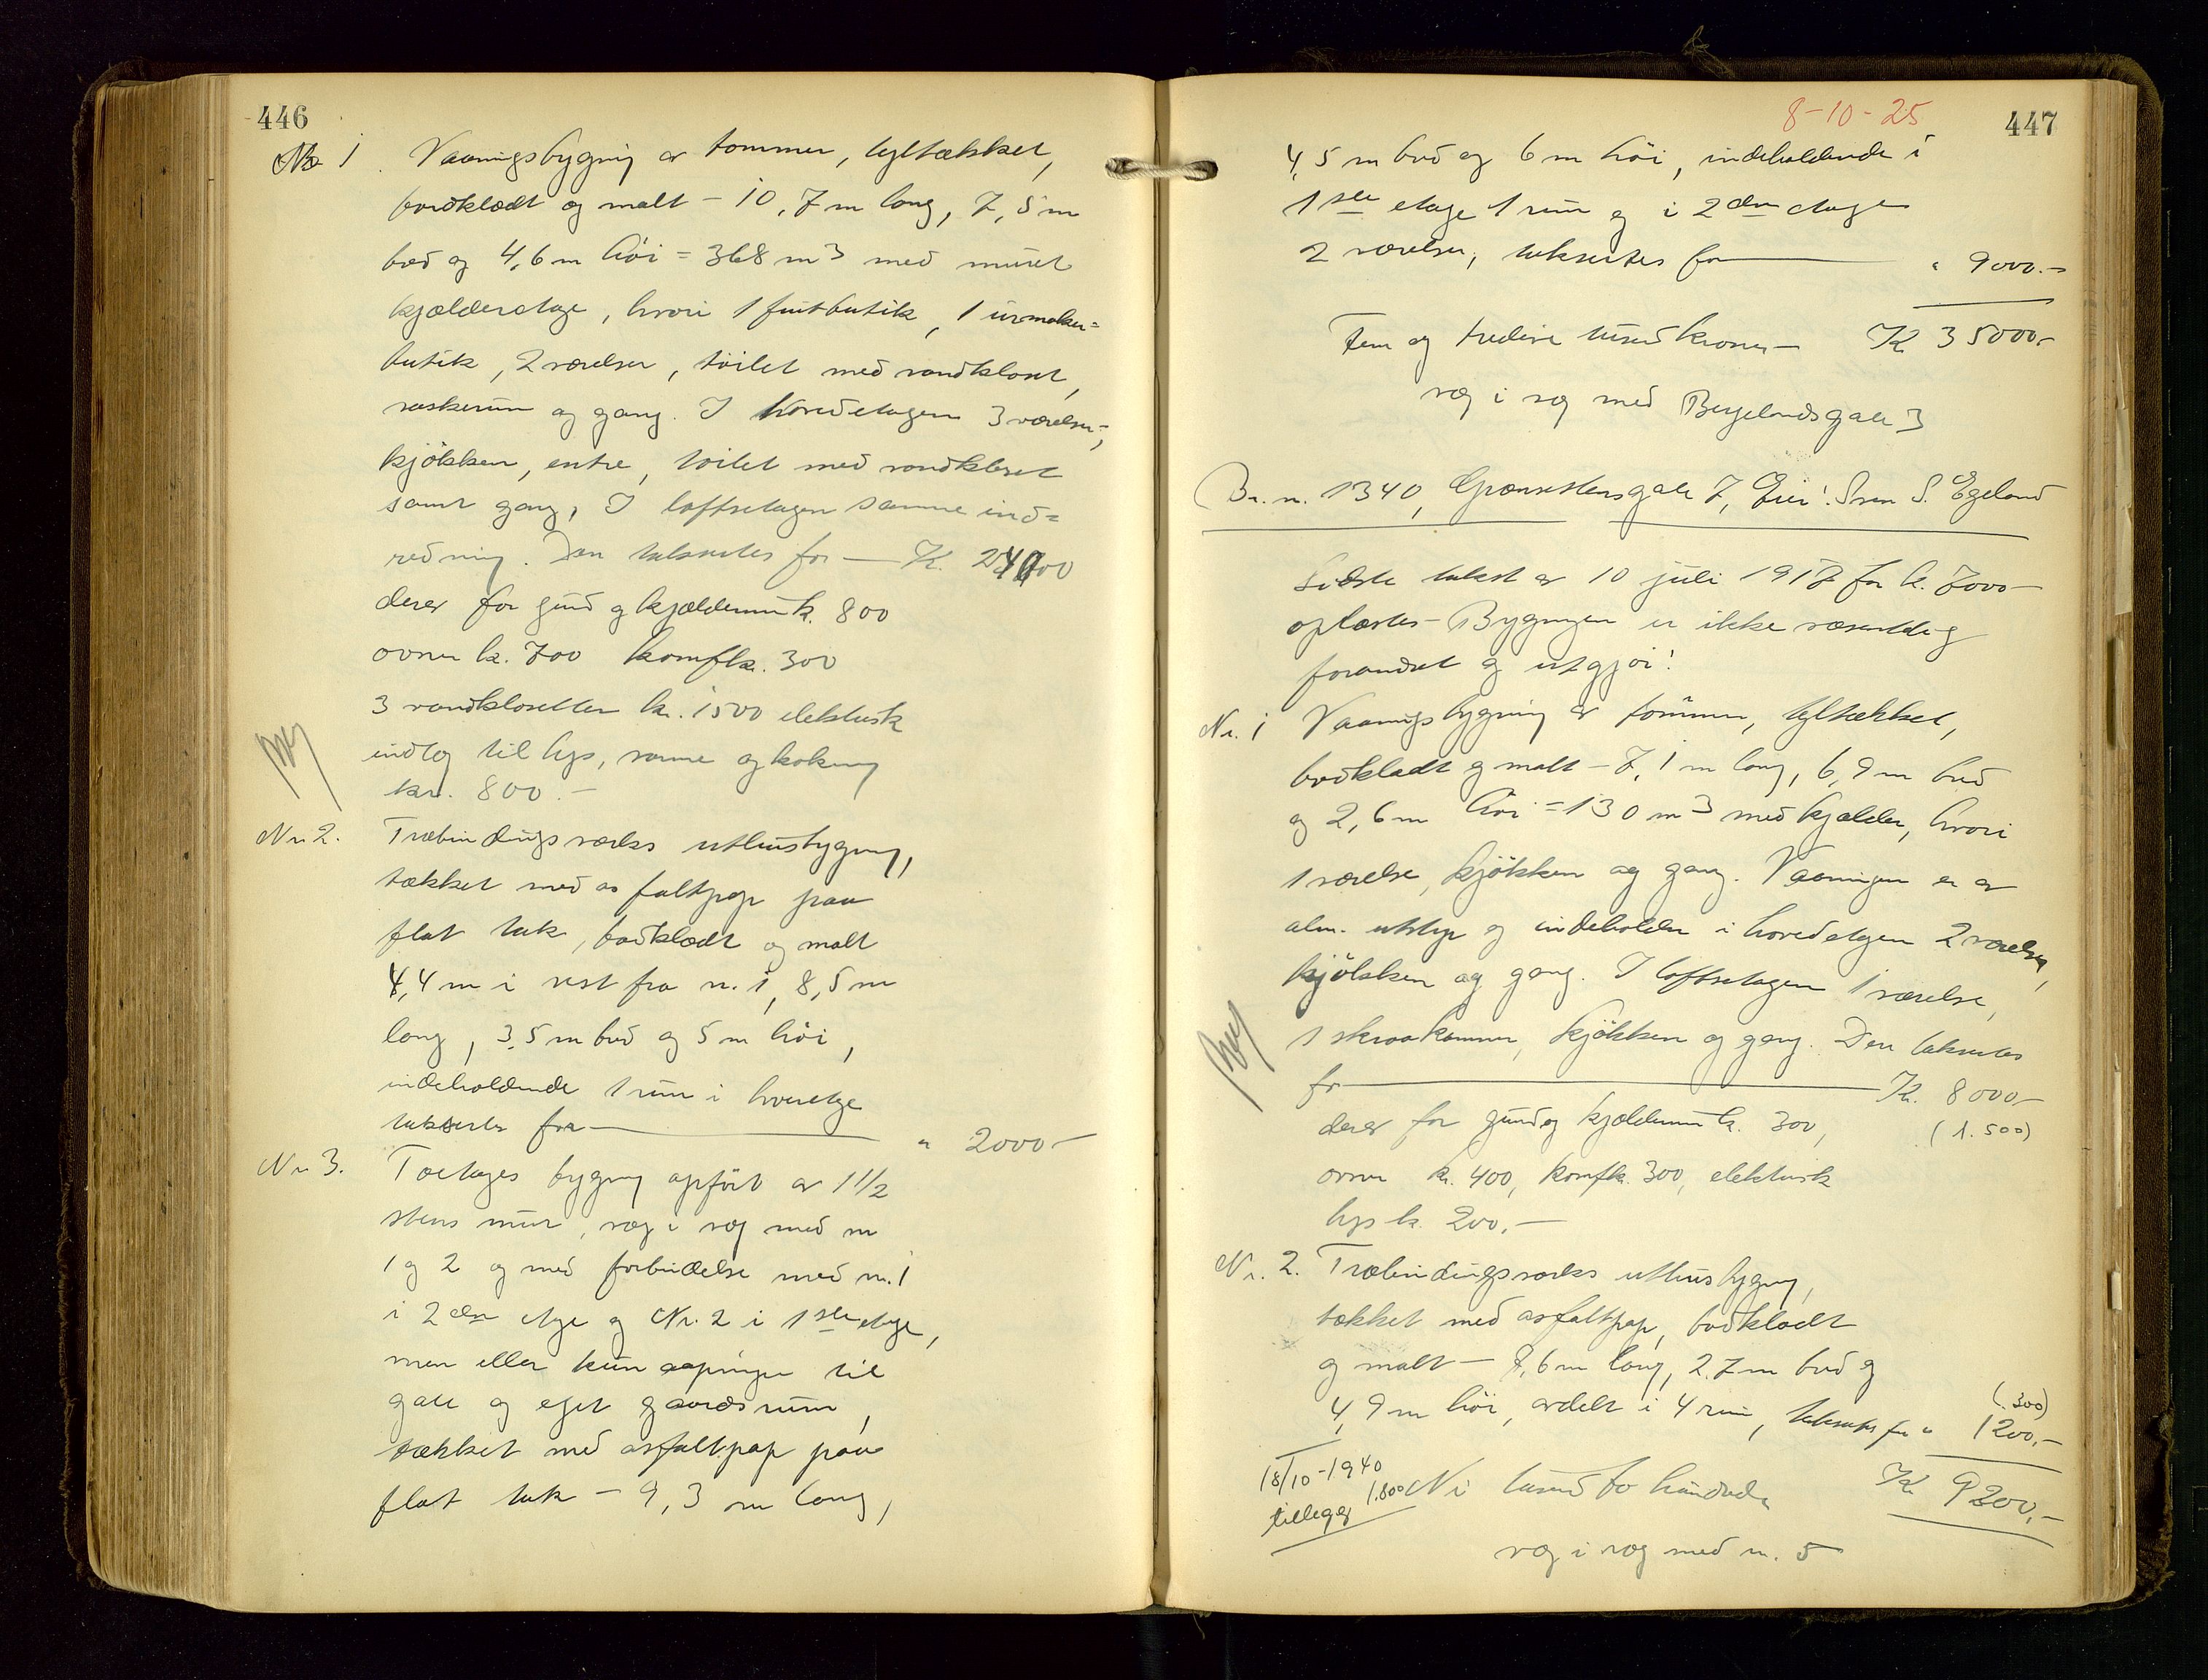 446
Nr 1. Vaaningsbygning av tømmer, tegltækket,
bordklædt og malt – 10,7 m lang, 7,5 m
bred og 4,6 m höi = 368 m3 med muret
kjælderetage, hvori 1 fruktbutik, 1 urmaker=
butik, 2 værelser, toilet med vandkloset,
vaskerum og gang. I hovedetagen 3 værelser,
kjökken, entre, toilet med vandkloset
samt gang, I loftsetagen samme ind=
redning. Den takseres for — Kr. 24000
derav for grund og kjældermur kr. 800
ovner kr. 700 komf kr. 300
3 vandklosetter kr. 1500 elektrisk
indlæg til lys, varme og kokning
kr. 800.–
Nr. 2. Træbindingsverks uthusbygning,
tækket med asfaltpap paa
flat tak, bordklædt og malt
4,4 m i vest fra nr. 1, 8,5 m
lang, 3,5 m bred og 5 m höi,
indeholdende 1 rum i hver etage
takseres for — " 2000–
Nr. 3. Toetages bygning opfört av 1 1/2
stens mur, væg i væg med nr
1 og 2 og med forbindelse med nr. 1
i 2den etage og Nr. 2 i 1ste etage,
men ellers kun aapninger til
gate og eget gaardsrum,
tækket med asfaltpap paa
flat tak – 9,3 m lang,
8-10-25
447
4,5 m bred og 6 m höi, indeholdende i
1ste etage 1 rum og i 2den etage
2 værelser, takseres for — " 9000.–
Fem og tredive tusend kroner – Kr 35000.–
væg i væg med Bergelandsgate 3
Br. nr. 1340, Grænsestensgate 7, Eier: Sven S. Egeland
Sidste takst av 10 juli 1917 for kr. 7000–
oplæstes – Bygningen er ikke væsentlig
forandret og utgjör:
Nr. 1 Vaaningsbygning av tömmer, tegltækket,
bordklædt og malt – 7,1 m lang, 6,9 m bred
og 2,6 m höi = 130 m3 med kjælder, hvori
1 værelse, kjökken og gang. Vaaningen er av
alm. utstyr og indeholder i hovedetagen 2 værelser,
kjökken og gang. I loftsetagen 1 værelse,
1 skraakammer, kjökken og gang. Den takseres
for — Kr. 8000–
derav for grund og kjældermur kr. 300, (1.500)
ovner kr. 400, komf kr. 300, elektrisk
lys kr. 200,–
Nr. 2. Træbindingsverks uthusbygning,
tækket med asfaltpap, bordklædt
og malt – 7,6 m lang, 2,7 m bred og
4,9 m höi, avdelt i 4 rum, takseres for " 1200,–
(300)
Ni tusend to hundrede Kr 9200,–
18/10-1940
tillegg 1.800
væg i væg med nr. 5